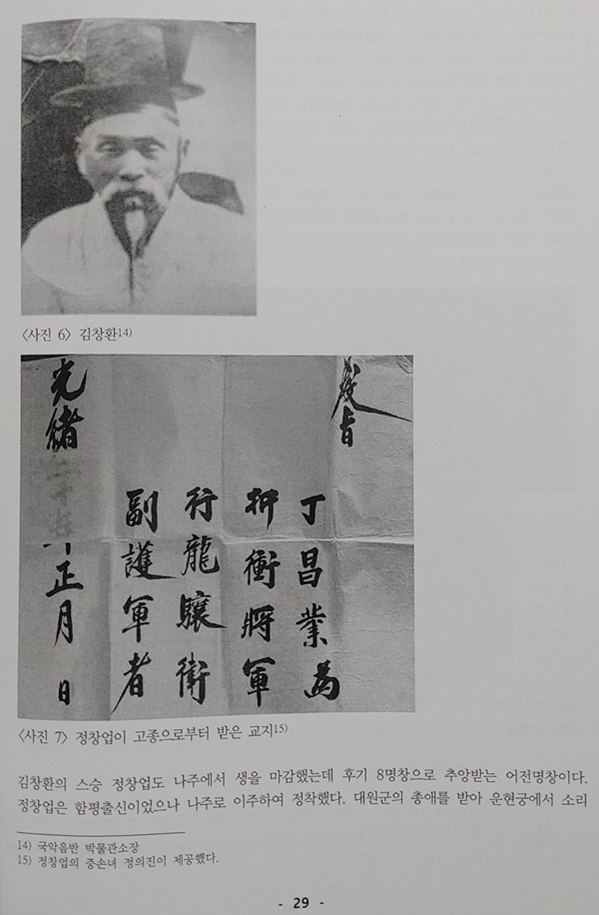 〈사진 6〉 김창환14)
敎旨
丁昌業爲
折衝將軍
行龍驤衛
副護軍者
光緖
正月 日
〈사진 7〉 정창업이 고종으로부터 받은 교지15)
김창환의 스승 정창업도 나주에서 생을 마감했는데 후기 8명창으로 추앙받는 어전명창이다.
정창업은 함평출신이었으나 나주로 이주하여 정착했다. 대원군의 총애를 받아 운현궁에서 소리
14) 국악음반 박물관소장
15) 정창업의 증손녀 정의진이 제공했다.
- 29 -